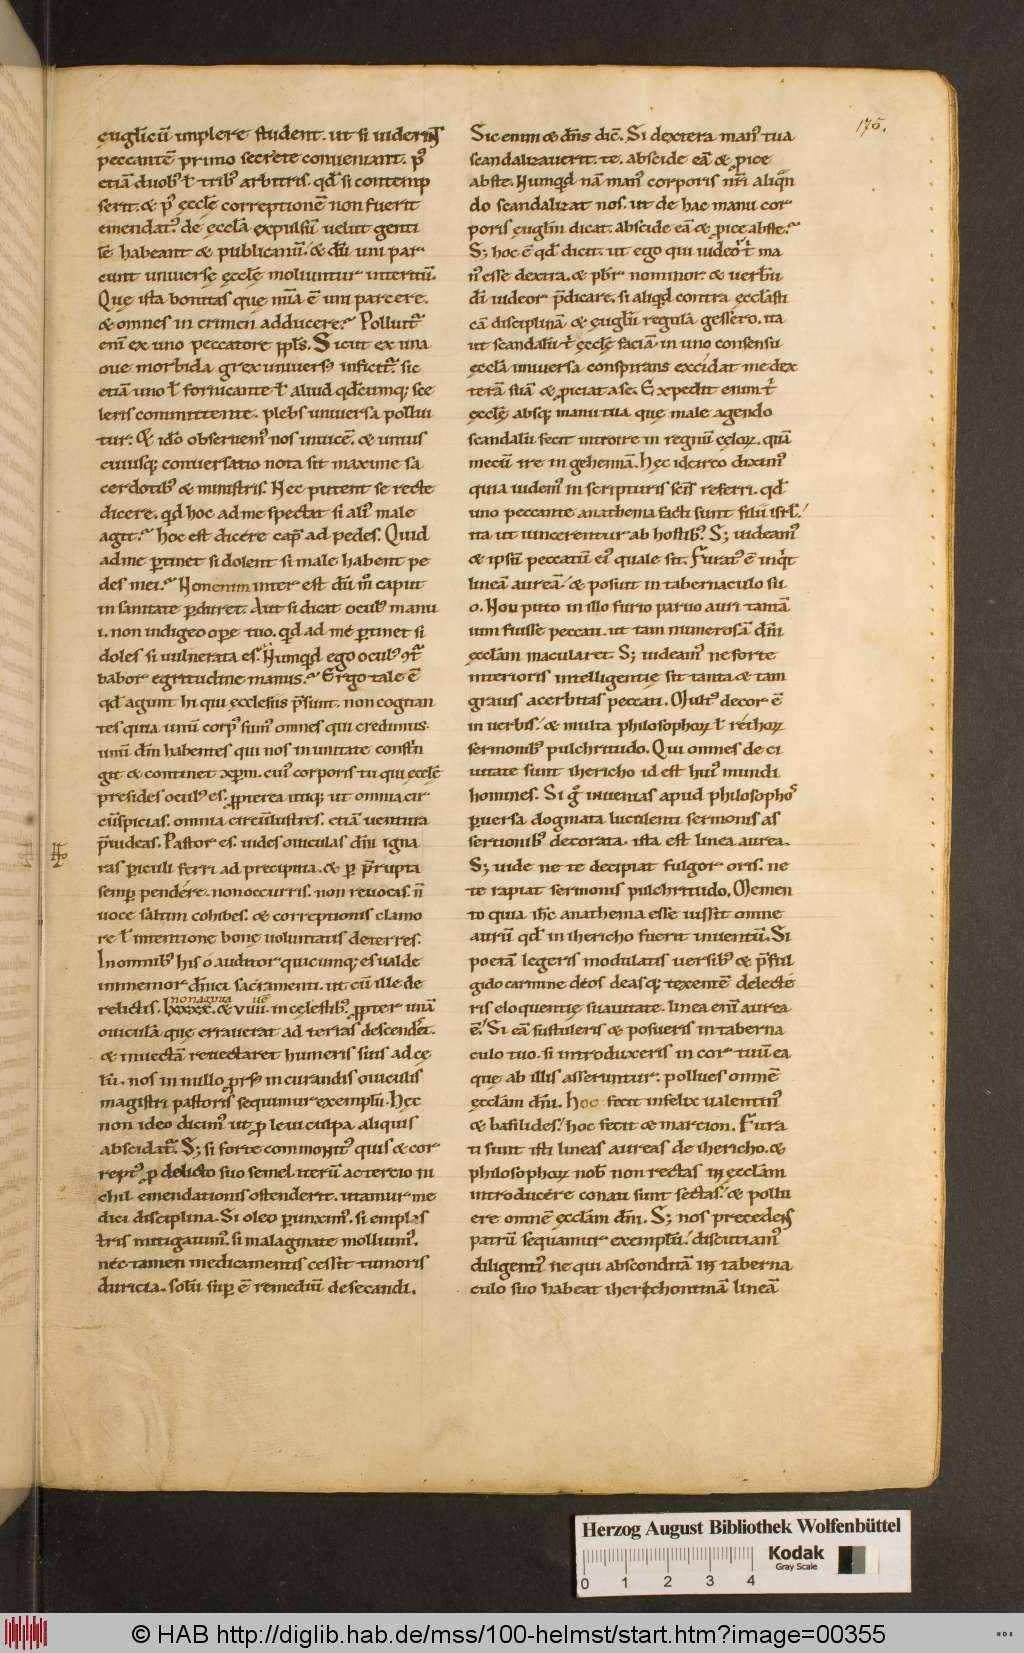 175.
ęuglicū implere student. ut si uiderint
peccantē primo secrete conueniant. p᷒
etiā duob᷒ ł trib᷒ arbitris. qđ si contemp
serit. & p᷒ ęcclę correptionē non fuerit
emendat᷒. de ęccla expulsū uelut genti
lē habeant & publicanū. & dū uni par
cunt uniuersę ęcclę moliuntur interitū.
Quę ista bonitas quę mīa ē uni parcere.
& omnes in crimen adducere? Polluit᷑
enī ex uno peccatore ppls. Sicut ex una
oue morbida grex uniuers᷒ inficit᷑. sic
etiā uno ł fornicante ł aliud qđcumq; sce
leris committente. plebs uniuersa pollui
tur. & idō obseruem᷒ nos inuicē. & unius
cuiusq; conuersatio nota sit maxime sa
cerdotib᷒ & ministris. Nec putent se recte
dicere. qid hoc ad me spectat si ali᷒ male
agit? hoc est dicere cap᷑ ad pedes. Quid
ad me ptinet si dolent si male habent pe
des mei? Non enim inter est dū m̄ caput
in sanitate pduret. Aut si dicat ocul᷒ manu
i. non indigeo ope tuo. qid ad me ptinet si
doles si uulnerata es. Numqid ego ocul᷒ ꝯt᷑
babor egritudine manus? Ergo tale ē
qđ agunt hi qui ęcclesiis psunt. non cogitan
tes quia unū corp᷒ sum᷒ omnes qui credimus.
unū dm̄ habentes qui nos in unitate constn
git & continet xpm. cui᷒ corporis tu qui ęcclę
presides ocul᷒ es. ppterea utiq; ut omnia cir
cūspicias. omnia circūlustres. etiā uentura
puideas. Pastor es. uides ouiculas dn̄i igna
ras piculi ferri ad precipitia. & p prupta
semp pendére. non occurris. non reuocas. n̄
uoce saltim cohibes. & correptionis clamo
re ł intentione bonę uoluntatis deterres.
In omnib᷒ his ō auditor quicumq; es ualde
inmemor dn̄ici sacramenti. ut cū ille de
nonaginta uē
relictis. lxxxx. & viiii. in cęlestib᷒. ppter unā
ouiculā quę errauerat ad terras descendet.
& inuectā reuectaret humeris suis ad cę
lū. nos in nullo prs᷒ in curandis ouiculis
magistri pastoris sequimur exemplū. Hęc
non ideo dicim᷒ ut p leui culpa aliquis
abscidat᷑. S; si forte commonit᷒ quis & cor
rept᷒ p delicto suo semel iterū ac tercio ni
chil emendationis ostenderit. utamur me
dici disciplina. Si oleo punxim᷒. si emplas
tris mitigauim᷒. si malagmate molliuim᷒.
néc tamen medicamentis cessit tumoris
duricia. solū sup ē remediū desecandi.
Sic enim & dn̄s dic̄. Si dextera man᷒ tua
scandalizauerit. te. abscide eā & proice
abs te. Numqid nā man᷒ corporis nr̄i aliqn
do scandalizat nos. ut de hac manu cor
poris ęuglm dicat. abscide eā & proice abs te?
S; hoc ē qđ dicit. ut ego qui uideor t ma
n᷒ esse dextra. & pbr nominor. & uerbū
dī uideor pdicare. si aliqid contra ęcclasti
cā disciplinā & ęuglii regulā gessero. ita
ut scandalū t ęcclę faciā. in uno consensu
ęccla uniuersa conspirans excidat me dex
terā suā & proiciat a se. Expedit enim t
ęcclę absq; manu tua quę male agendo
scandalū fecit introire in regnū cęloꝝ. quā
mecū ire in gehennā. Hęc idcirco diximus
quia uidem᷒ in scripturis scīs referri. qđ
uno peccante anathema facti sunt filii isrl.
ita ut uincerentur ab hostib᷒. S; uideam᷒
& ipsū peccatū ei᷒ quale sit. Furat᷒ ē inqit
lineā aureā. & posuit in tabernaculo su
o. Non puto in illo furto paruo auri tantā
uim fuisse peccati. ut tam numerosā dn̄i
ęcclam macularet. S; uideam᷒ ne forte
interioris intelligentię sit tanta & tam
grauis acerbitas peccati. Mult᷒ decor ē
in uerbis. & multa philosophoꝝ ł rethoꝝ
sermonib᷒ pulchritudo. Qui omnes de ci
uitate sunt ihericho id est hui᷒ mundi
homines. Si g inuenias apud philosophos
puersa dogmata luculenti sermonis as
sertionib᷒ decorata. ista est linea aurea.
S; uide ne te decipiat fulgor oris. ne
te rapiat sermonis pulchritudo. Memen
to quia ihc anathema esse iussit omne
aurū qđ in ihericho fuerit inuentū. Si
poetam legeris modulatis uersib᷒ & pful
gido carmine deos deasq; texentē delecté
ris eloquentię suauitate. linea enī aurea
ē. Si eā sustuleris & posueris in taberna
culo tuo. si introduxeris in cor tuū ea
quę ab illis asseruntur. pollues omnē
ęcclam dn̄i. Hoc fecit infelix ualentin᷒
& basilides. hoc fecit & marcion. Fura
ti sunt isti lineas aureas de ihericho. &
philosophoꝝ nob̄ non rectas in ęcclam
introducére conati sunt sectas. & pollu
ere omnē ęcclam dn̄i. S; nos precedens
patrū sequamur exemplū. discutiam᷒
diligenti᷒ ne qui absconditā in taberna
culo suo habeat iherichontinā lineā
Herzog August Bibliothek Wolfenbüttel
Kodak
Gray Scale
0 1 2 3 4
© HAB http://diglib.hab.de/mss/100-helmst/start.htm?image=00355
HAB